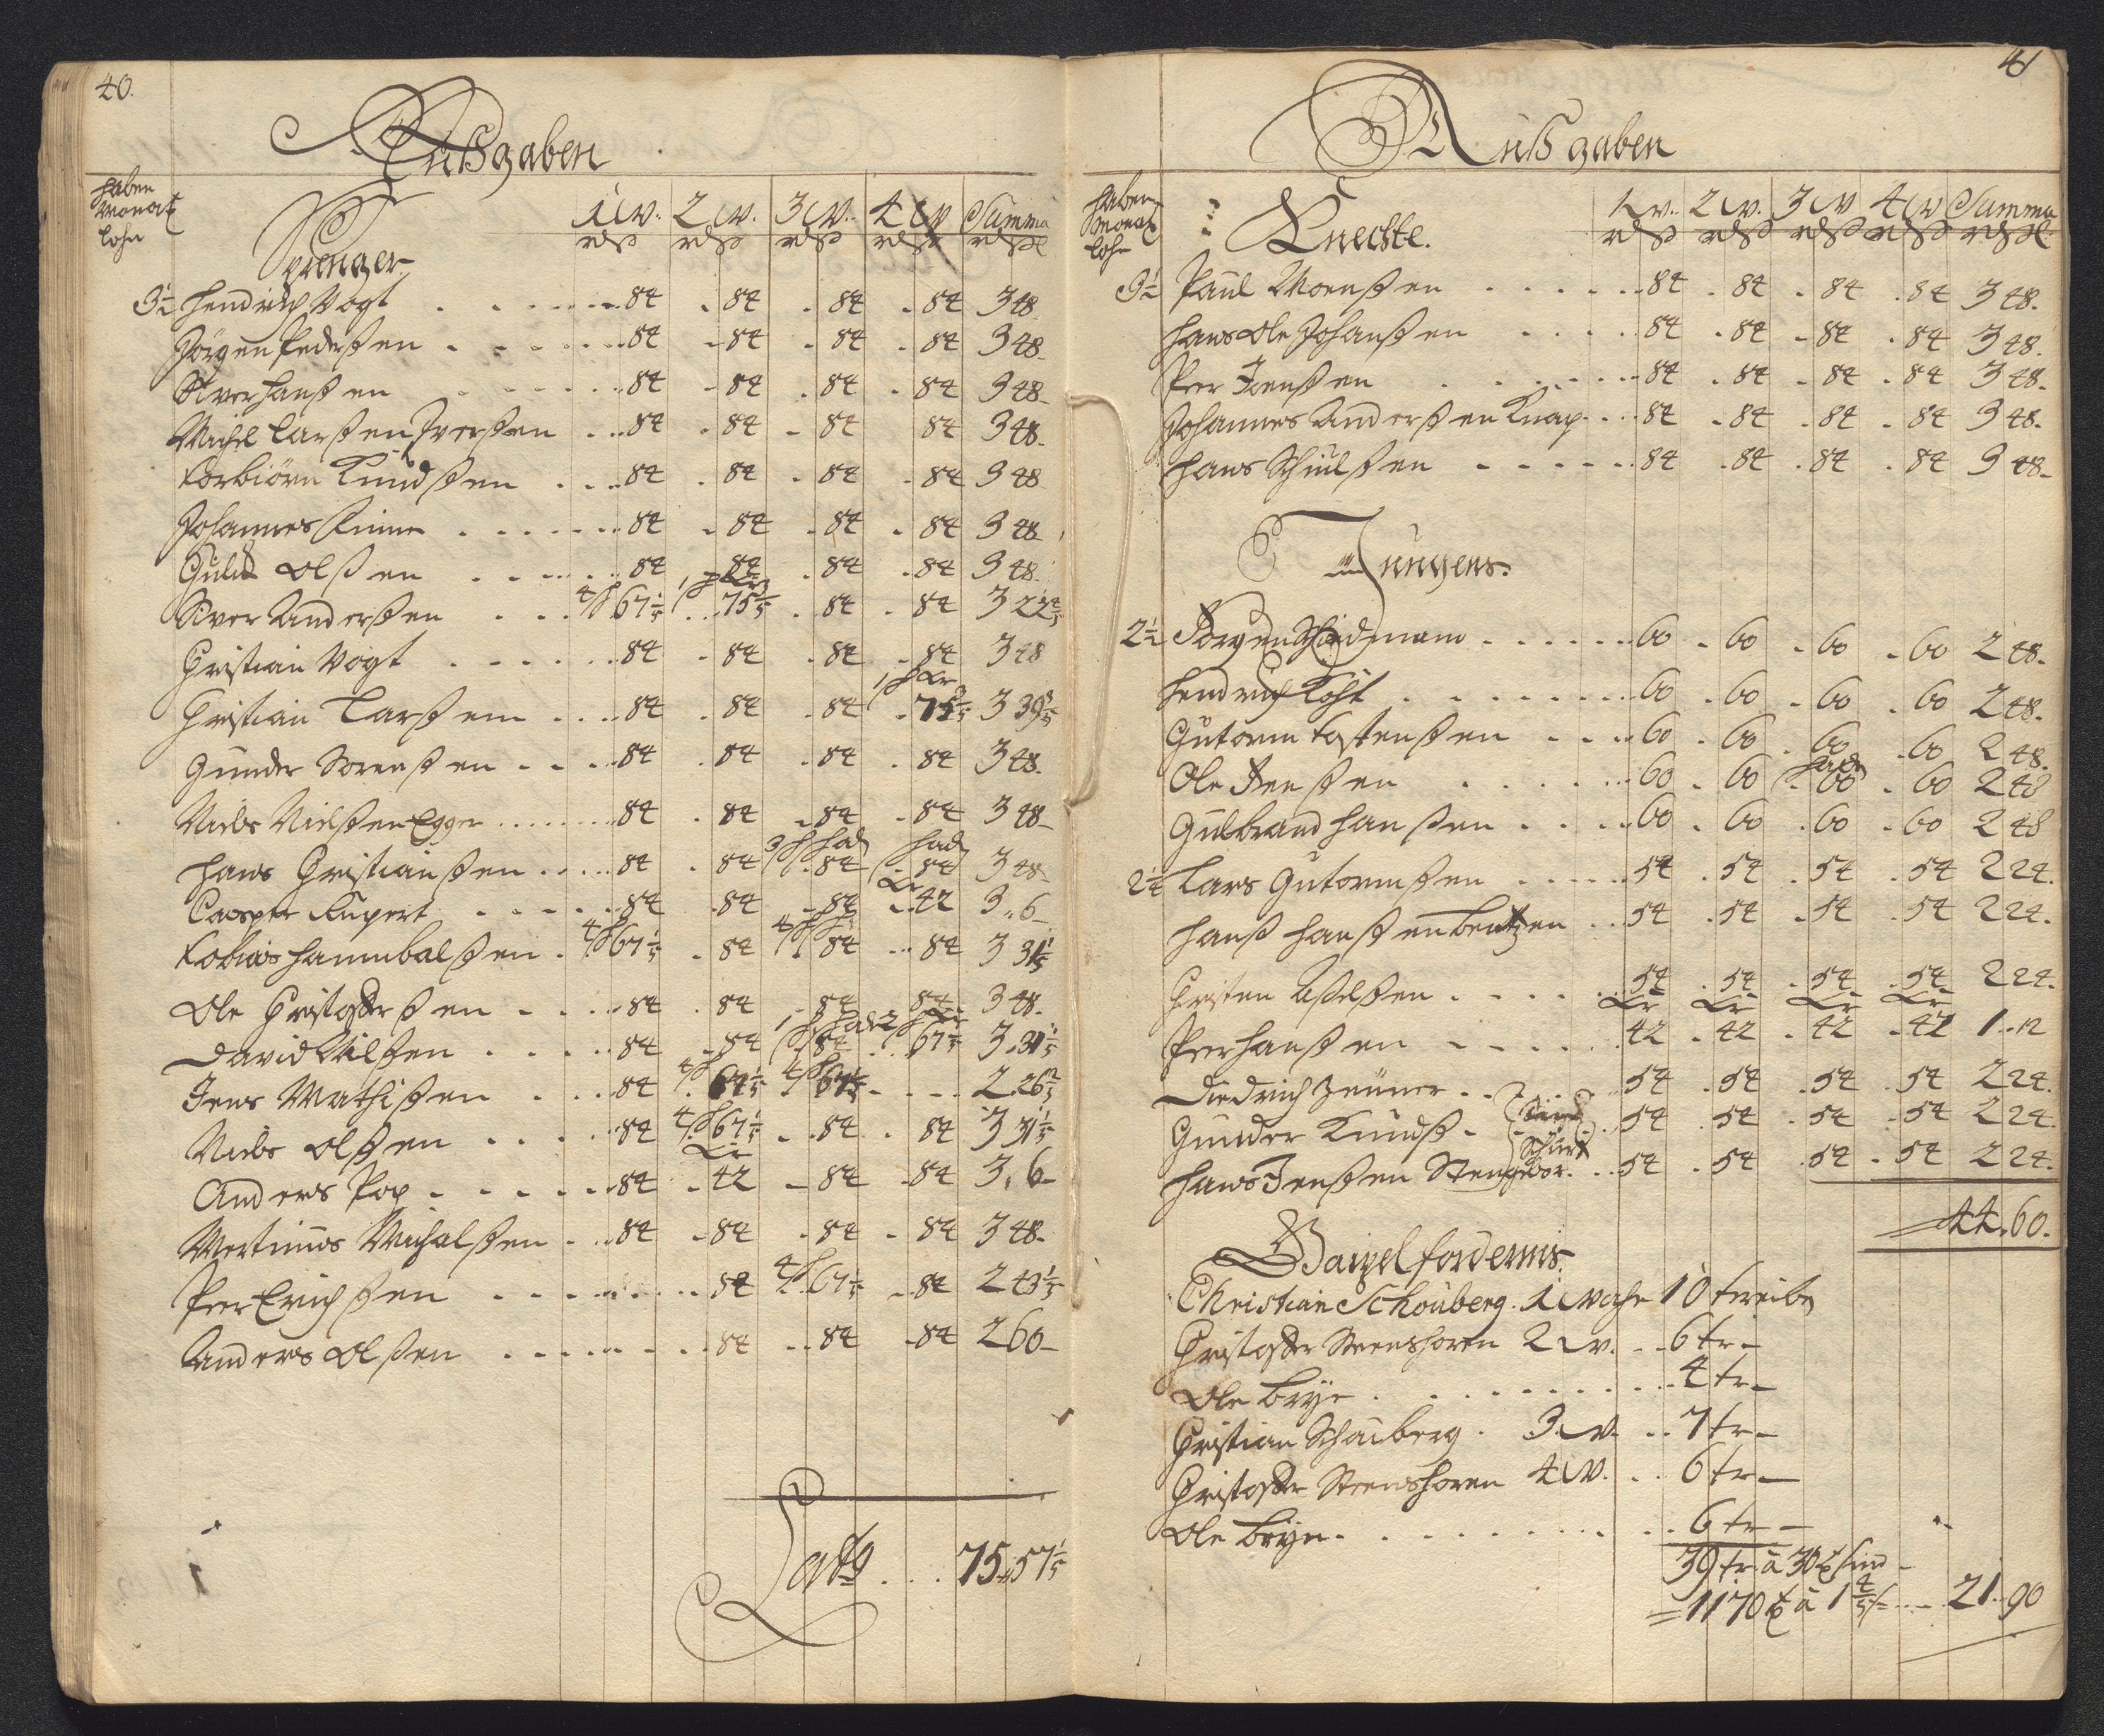 40.
Außgaben
haben
Monat
lohn
Sprenger
1 W. 2 W. 3 W. 4 W Summa
rdß rdß rdß rdß rdß
3½ Hendrich Vogt 84 84 84 84 3 48
Jörgen Pederßen 84 84 84 84 3 48
Siver Hanßen 84 84 84 84 3 48
Michel Larßen Iverßen 84 84 84 84 3 48
Torbiörn Knudßen 84 84 84 84 3 48
Johannes 84 84 84 84 3 48
Olßen 84 84 84 84 3 48
Siver Anderßen 4/S 67 1/5 75 3/5 84 84 3 22 4/5
Cristian Vogt 84 84 84 84 3 48
Cristian Larßen 84 84 84 75 3/5 3 39 3/5
Gunder Sörenßen 84 84 84 84 3 48
Niels Nielßen Egger 84 84 84 84 3 48
Hans Cristianßen 84 84 84 84 3 48
Casper Rupert 84 84 84 42 3 6
Tobias Hannibalßen 4/S 67 1/5 84 84 84 3 31 1/5
Ole Cristofferßen 84 84 84 84 3 48
David Nilßen 84 84 84 67 1/5 3 31 1/5
Jens Mathißen 84 67 1/5 67 1/5 2 26 2/5
Niels Olßen 84 4/S 67 1/5 84 84 3 31 1/5
Anders Pop 84 42 84 84 3 6
Mertinus Michalßen 84 84 84 84 3 48
Peer Erichßen 84 67 1/5 84 2 43 1/5
Anders Olßen 84 84 84 2 60
Latg 75 57 1/5
41
Außgaben
haben
Monat
lohn
Knechte.
1 W. 2 W. 3 W 4 W Summa
rdß rdß rdß rdß rdß
3½ Paul Monßen 84 84 84 84 3 48.
Hans Ole Johanßen 84 84 84 84 3 48.
Peer Jenßen 84 84 84 84 3 48.
Johannes Anderßen Knap 84 84 84 84 3 48.
Hans Schulßen 84 84 84 84 3 48
Jungens.
2½ Jörgen 60 60 60 60 2 48.
Hendrich Koht 60 60 60 60 2 48.
Gutorm Tostenßen 60 60 60 60 2 48.
Ole Jenßen 60 60 60 60 2 48
Gulbrand Hanßen 60 60 60 60 2 48
2¼ Lars Gutormßen 54 54 54 54 2 24.
Hanß Hanßen Bentzen 54 54 54 54 2 24.
Cristen Aßelßen 54 54 54 54 2 24.
Peer Hanßen 42 42 42 42 1 72
Diedrich Zeuner 54 54 54 54 2 24.
Gunder Knudß 54 54 54 54 2 24.
Hans Jenßen 54 54 54 54 2 24.
44.60.
Gaipel fordernis.
Christian Schouberg. 1 Woche 10 treiben
Cristoffer Steenshoren 2 W. 6 tr
Ole Brye 4 tr
Cristian Schouberg 3 W. 7 tr
Cristoffer Steenshoren 4 W. 6 tr
Ole Brye 6 tr
39 tr. a 30 sind
1170 a 1 4/5 ß 21 90